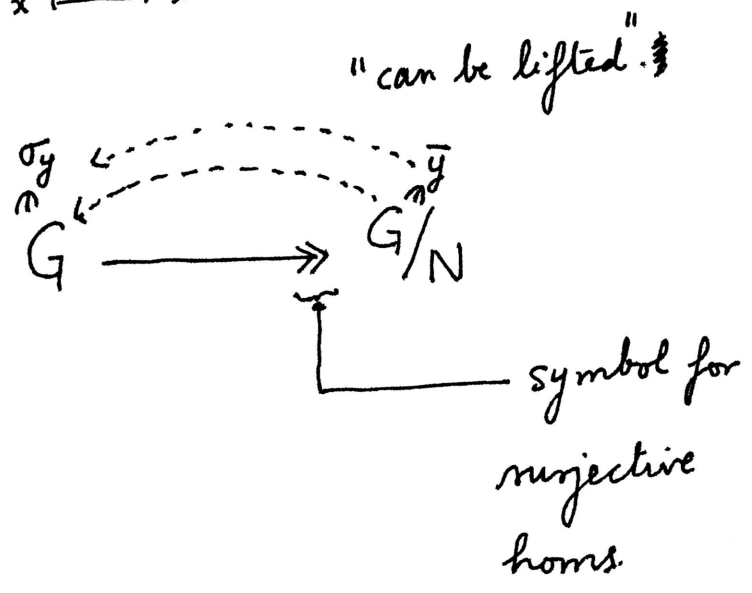 "can be lifted".
σy ȳ
G G/N
symbol for
surjective
homs.